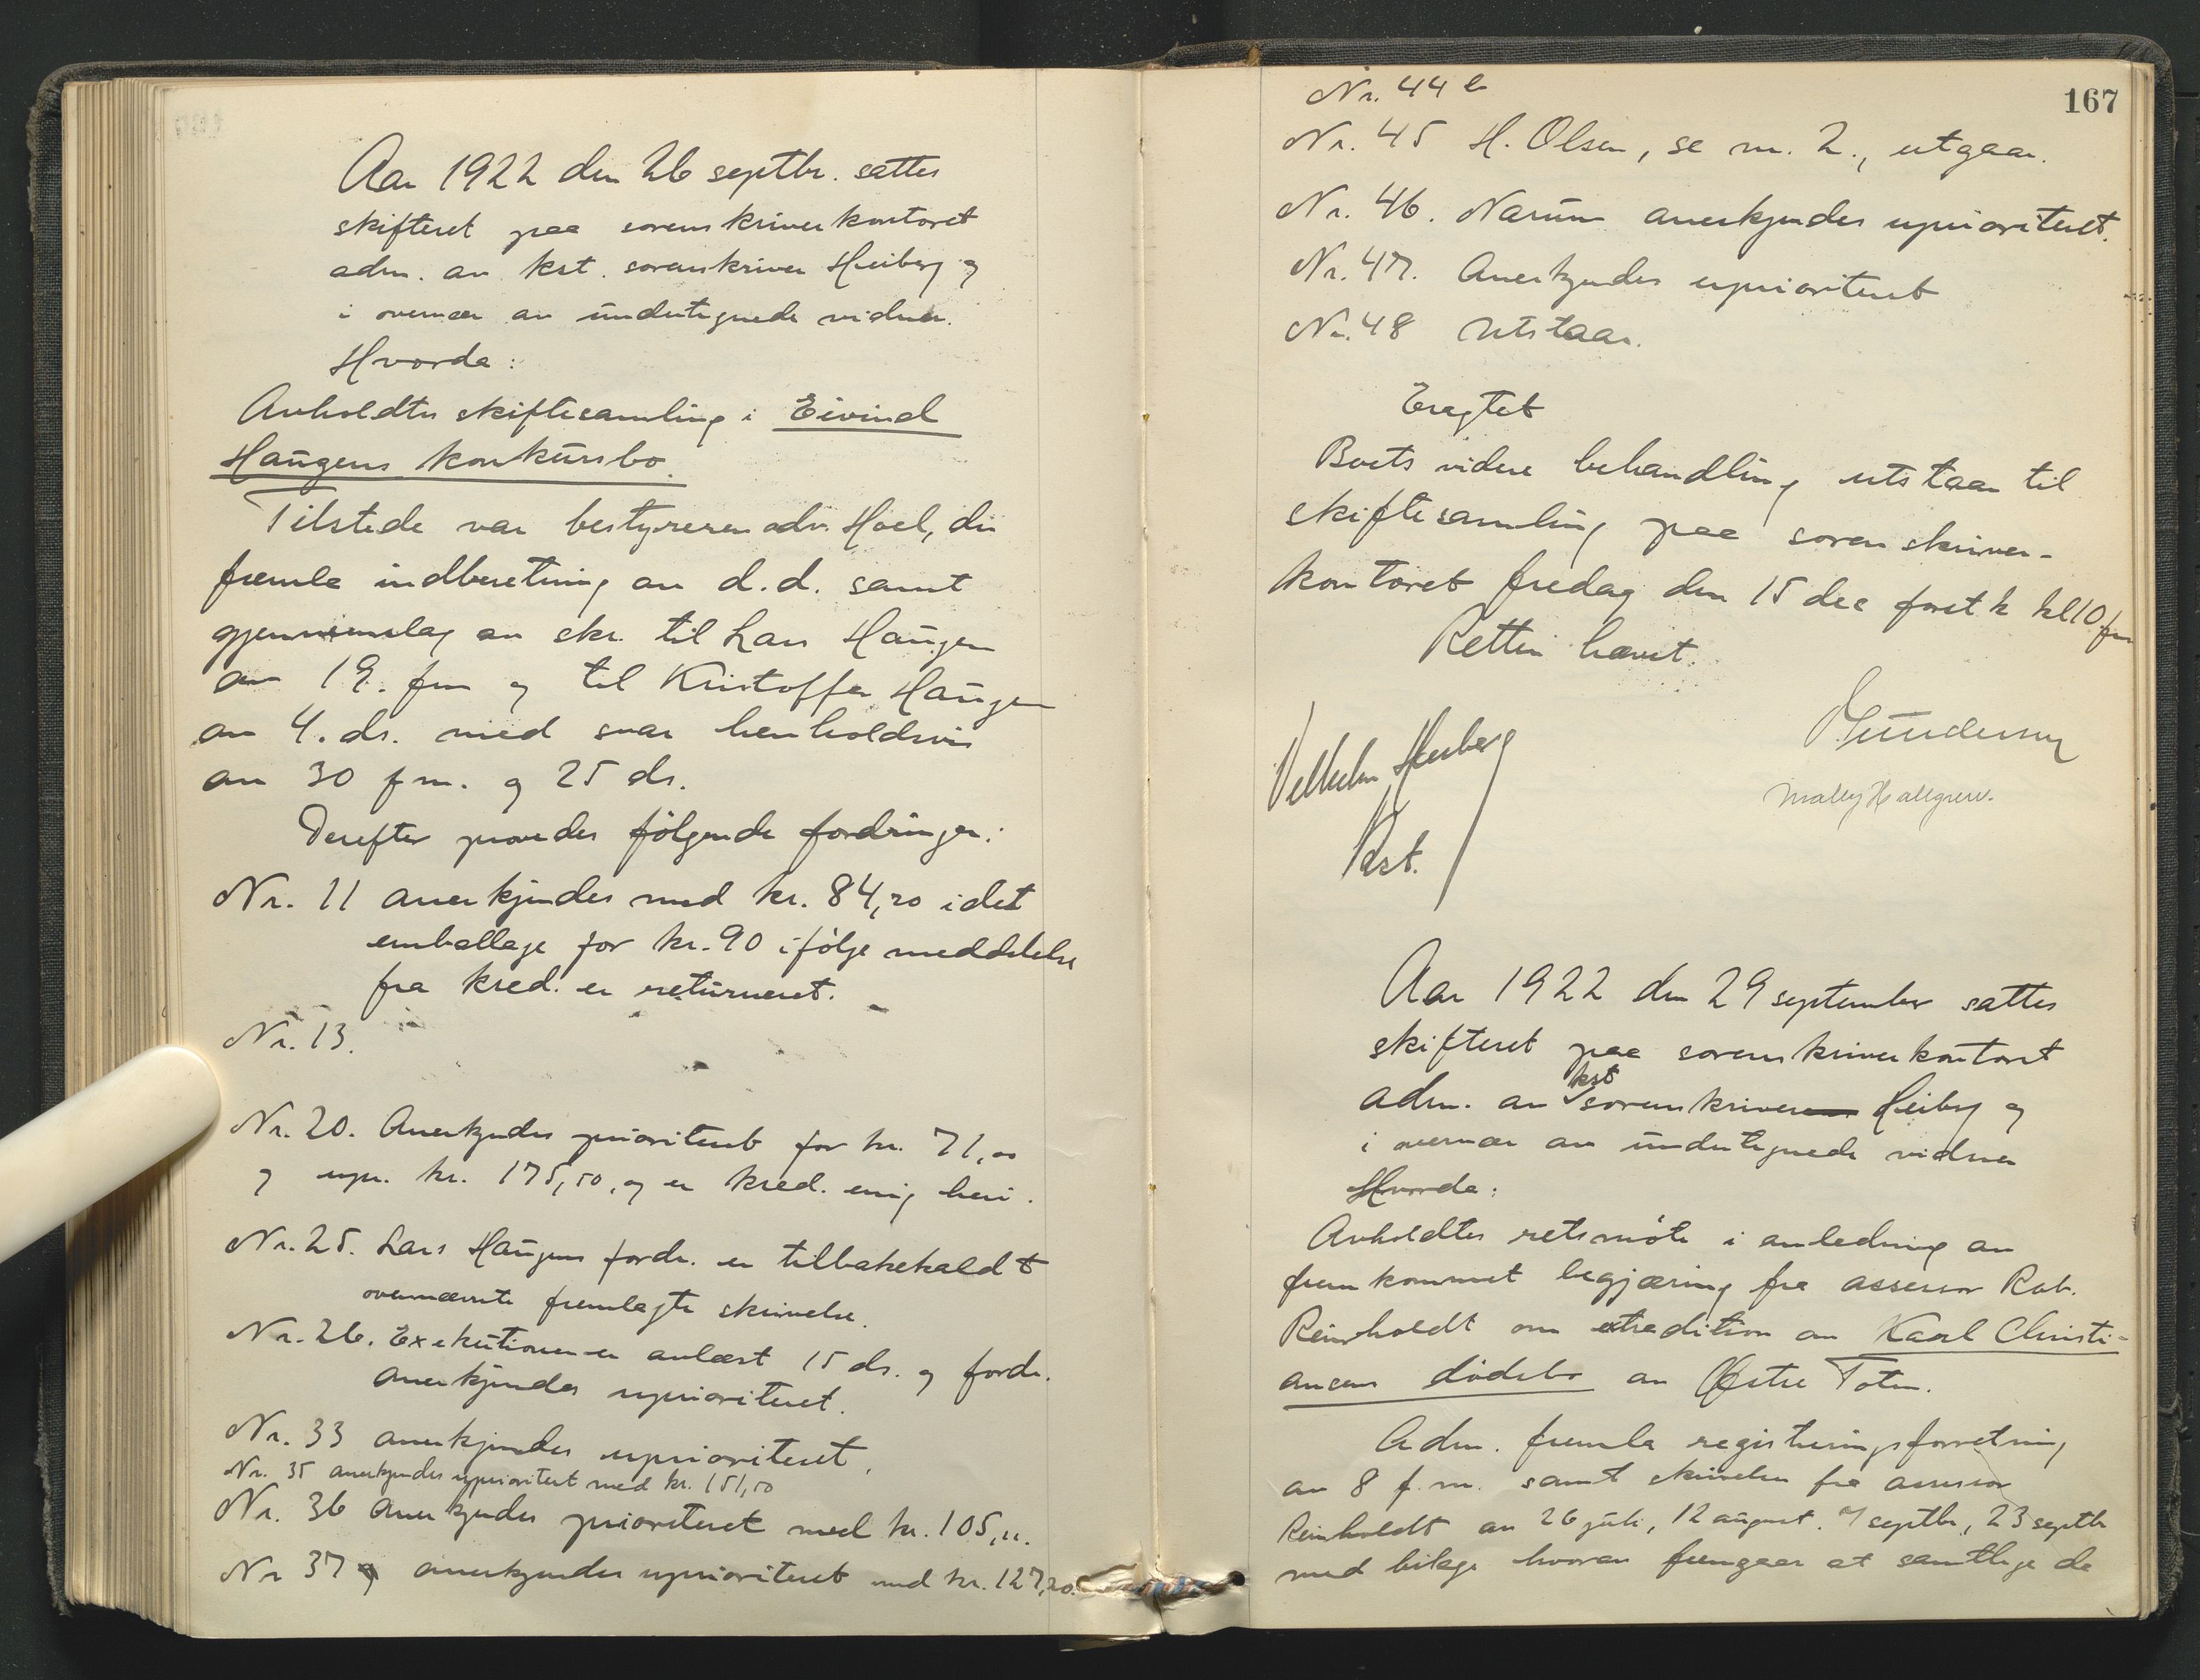 Aar 1922 den 26 septbr. sattes
skifteret paa sorenskriverkontoret
adm. av kst. sorenskriver Heiberg og
i overvær av undertegnede vidner.
Hvorda:
Avholdtes skiftesamling i Eivind
Haugens konkursbo.
Tilstede var bestyreren adv. Hoel, der
fremla indberetning av d.d. samt
gjennemslag av skr. til Lars Haugen
av 19. fm og til Kristoffer Haugen
av 4. ds. med svar henholdsvis
av 30 f m. og 25 ds.
Derefter prøvedes følgende fordringer:
Nr. 11 anerkjendes med kr. 84,20 idet
emballage for kr. 90 ifølge meddelelse
fra kred. er returneret.
Nr. 13.
Nr. 20. Anerkjendes prioriteret for kr. 71,00
og upr. kr. 175,50, og er kred. enig heri.
Nr. 25. Lars Haugens fordr. er tilbakekaldt
ovennævnte fremlagte skrivelse.
Nr. 26. Exekutionen er avlæst 15 ds. og fordr.
anerkjendes uprioriteret.
Nr. 33 anerkjendes uprioriteret.
Nr. 35 anerkjendes uprioritert med kr. 151,50
Nr. 36 Anerkjendes prioriteret med kr. 105,00.
Nr 37 anerkjendes uprioriteret med kr. 127,20.
167
Nr. 44 b
Nr. 45 H. Olsen, se nr. 2., utgaar.
Nr. 46. Narum anerkjendes uprioriteret.
Nr. 47. Anerkjendes uprioriteret
Nr. 48 Utstaar.
Eragtet
Boets videre behandling utstaar til
skiftesamling paa sorenskriver-
kontoret fredag den 15 dec førstk kl 10 fm
Retten hævet.
Vilhelm Heiberg
Kst.
Gundersen
Mally Hallgren.
Aar 1922 den 29 september sattes
skifteret paa sorenskriverkontoret
kst
adm. av sorenskriveren Heiberg og
i overvær av undertegnede vidner
Hvorda:
Avholdtes retsmøte i anledning av
fremkommet begjæring fra assessor Rob.
Reinholdt om extradition av Karl Christi-
ansens dødsbo av Østre Toten.
Adm. fremla registreringsforretning
av 8 f. m. samt skrivelser fra assessor
Reinholdt av 26 juli, 12 august. 7 septbr, 23 septbr
med bilage hvorav fremgaar at samtlige de